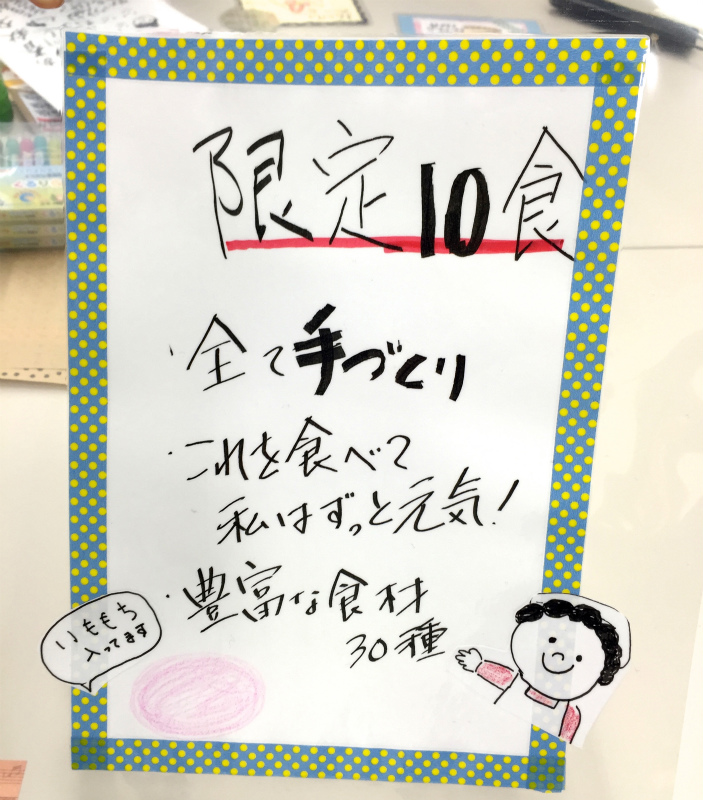 限定10食
・全て手づくり
・これを食べて
私はずっと元気!
・豊富な食材
30種
いももち
入ってます